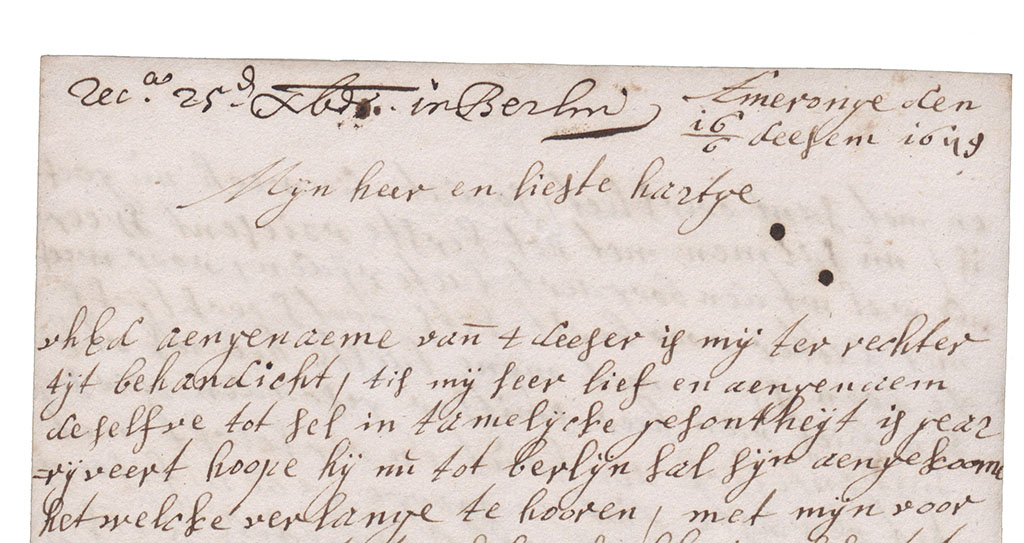 Rec.ᵃᵒ 25.ᵈ Xbr.. in Berlin
Ameronge den
16/6 deesem 1679
Mijn heer en lieste hartge
vhEd aengenaeme van 4 deeser is mij ter rechter
tijt behandicht, tis mij seer lief en aengenaem
deselfve tot sel in tamelijcke gesontheijt is gear
=rijveert hoope hij nu tot berlijn sal sijn aengekoome
het welcke verlange te hooren, met mijn voor